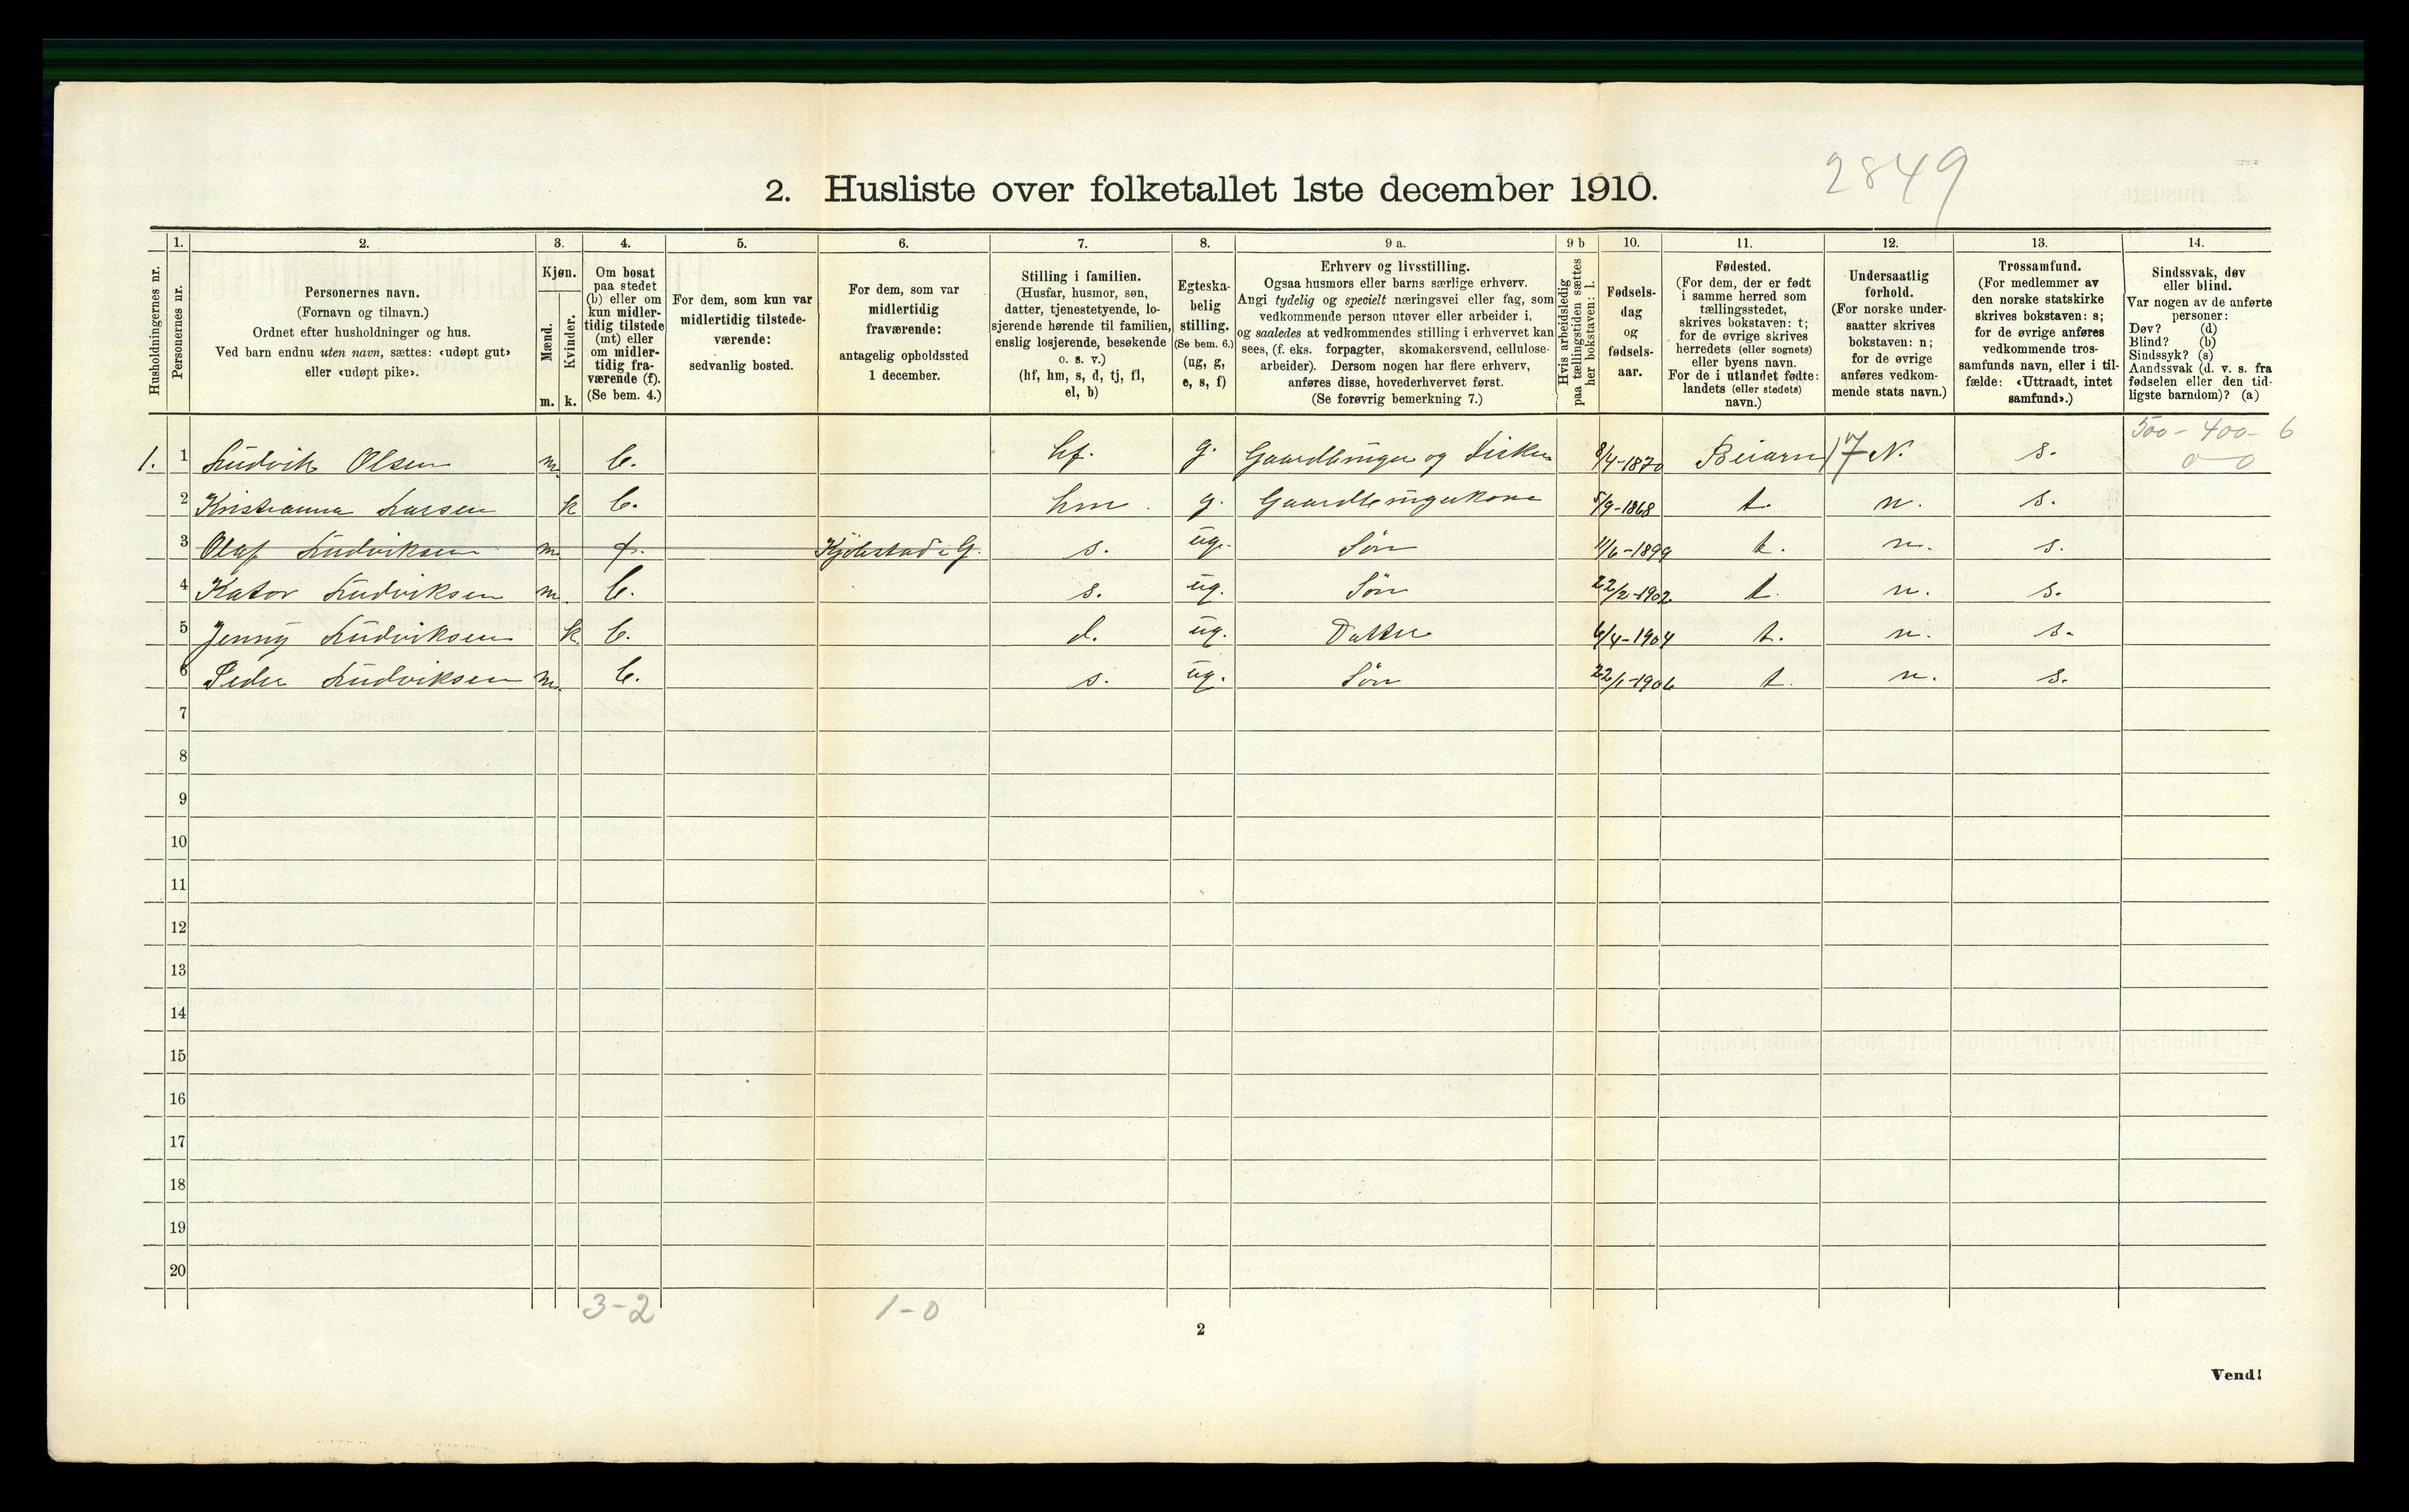 2. Husliste over folketallet 1ste december 1910.
2849
1. 2. 3. 4. 5. 6. 7. 8. 9 a. 9 b 10. 11. 12. 13. 14.
Husholdningernes nr.
Personernes nr.
Personernes navn.
(Fornavn og tilnavn.)
Ordnet efter husholdninger og hus.
Ved barn endnu uten navn, sættes: «udøpt gut»
eller «udøpt pike».
Kjøn.
Mænd.
Kvinder.
m. k.
Om bosat
paa stedet
(b) eller om
kun midler-
tidig tilstede
(mt) eller
om midler-
tidig fra-
værende (f).
(Se bem. 4.)
For dem, som kun var
midlertidig tilstede-
værende:
sedvanlig bosted.
For dem, som var
midlertidig
fraværende:
antagelig opholdssted
1 december.
Stilling i familien.
(Husfar, husmor, søn,
datter, tjenestetyende, lo-
sjerende hørende til familien,
enslig losjerende, besøkende
o. s. v.)
(hf, hm, s, d, tj, fl,
el, b)
Egteska-
belig
stilling.
(Se bem. 6.)
(ug, g,
e, s, f)
Erhverv og livsstilling.
Ogsaa husmors eller barns særlige erhverv.
Angi tydelig og specielt næringsvei eller fag, som
vedkommende person utøver eller arbeider i,
og saaledes at vedkommendes stilling i erhvervet kan
sees, (f. eks. forpagter, skomakersvend, cellulose-
arbeider). Dersom nogen har flere erhverv,
anføres disse, hovederhvervet først.
(Se forøvrig bemerkning 7.)
Hvis arbeidsledig
paa tællingstiden sættes
her bokstaven: l.
Fødsels-
dag
og
fødsels-
aar.
Fødested.
(For dem, der er født
i samme herred som
tællingsstedet,
skrives bokstaven: t;
for de øvrige skrives
herredets (eller sognets)
eller byens navn.
For de i utlandet fødte:
landets (eller stedets)
navn.)
Undersaatlig
forhold.
(For norske under-
saatter skrives
bokstaven: n;
for de øvrige
anføres vedkom-
mende stats navn.)
Trossamfund.
(For medlemmer av
den norske statskirke
skrives bokstaven: s;
for de øvrige anføres
vedkommende tros-
samfunds navn, eller i til-
fælde: «Uttraadt, intet
samfund».)
Sindssvak, døv
eller blind.
Var nogen av de anførte
personer:
Døv? (d)
Blind? (b)
Sindssyk? (s)
Aandssvak (d. v. s. fra
fødselen eller den tid-
ligste barndom)? (a)
500 - 400 - 6
0 0
1. 1 Ludvik Olsen m. b. hf. g. Gaardbruger og Fisker 8/4-1870 Beiarn 17 N. s.
2 Kristianna Larsen k b. hm. g. Gaardbrugerkone 5/9-1868 t. n. s.
3 Olaf Ludviksen m. f. Kjölestad i G. s. ug. Sön 11/6-1899 t. n. s.
4 Kator Ludviksen m. b. s. ug. Sön 22/2-1902 t. n. s.
5 Jenny Ludviksen k. b. d. ug. Datter 6/4-1904 t. n. s.
6 Peder Ludviksen m. b. s. ug. Sön 22/1-1906 t. n. s.
7
8
9
10
11
12
13
14
15
16
17
18
19
20
3-2 1-0
2
Vend!